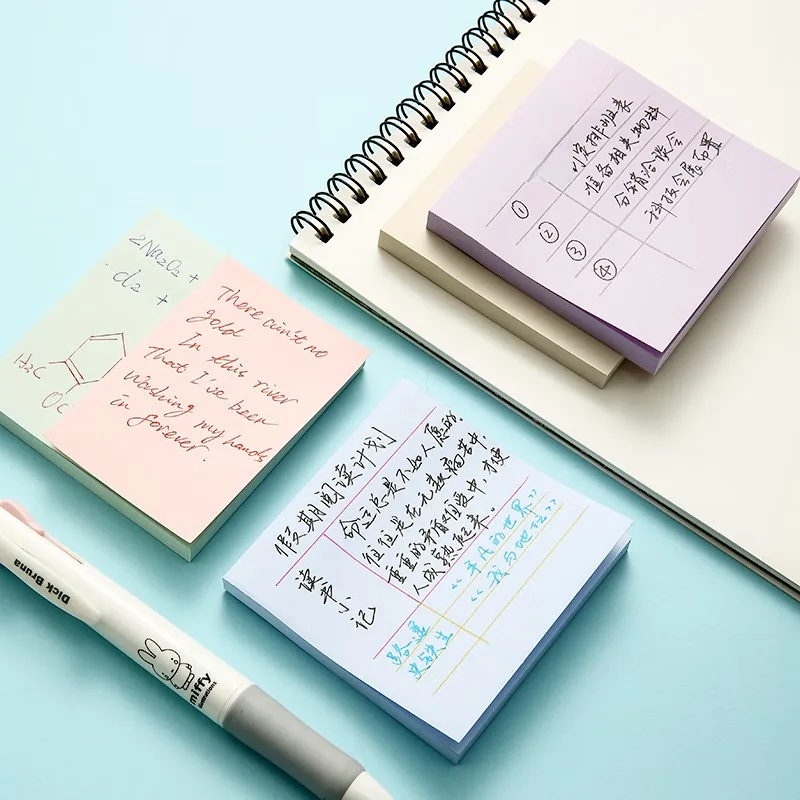 ① 排班表
② 准备相关物料
③ 分销洽谈会
④ 科技会展布置
2Na₂O₂ +
+
H₃C
OC
There ain't no
gold
In this river
That I've been
Washing my hands
in forever.
假期阅读计划
读书小记
命运总是不如人愿的.
但往往是在无数痛苦中,
重重的矛盾和艰难中,才使
人成熟起来。
路遥 《平凡的世界》
史铁生 《我与地坛》
Dick Bruna
miffy
illustrations